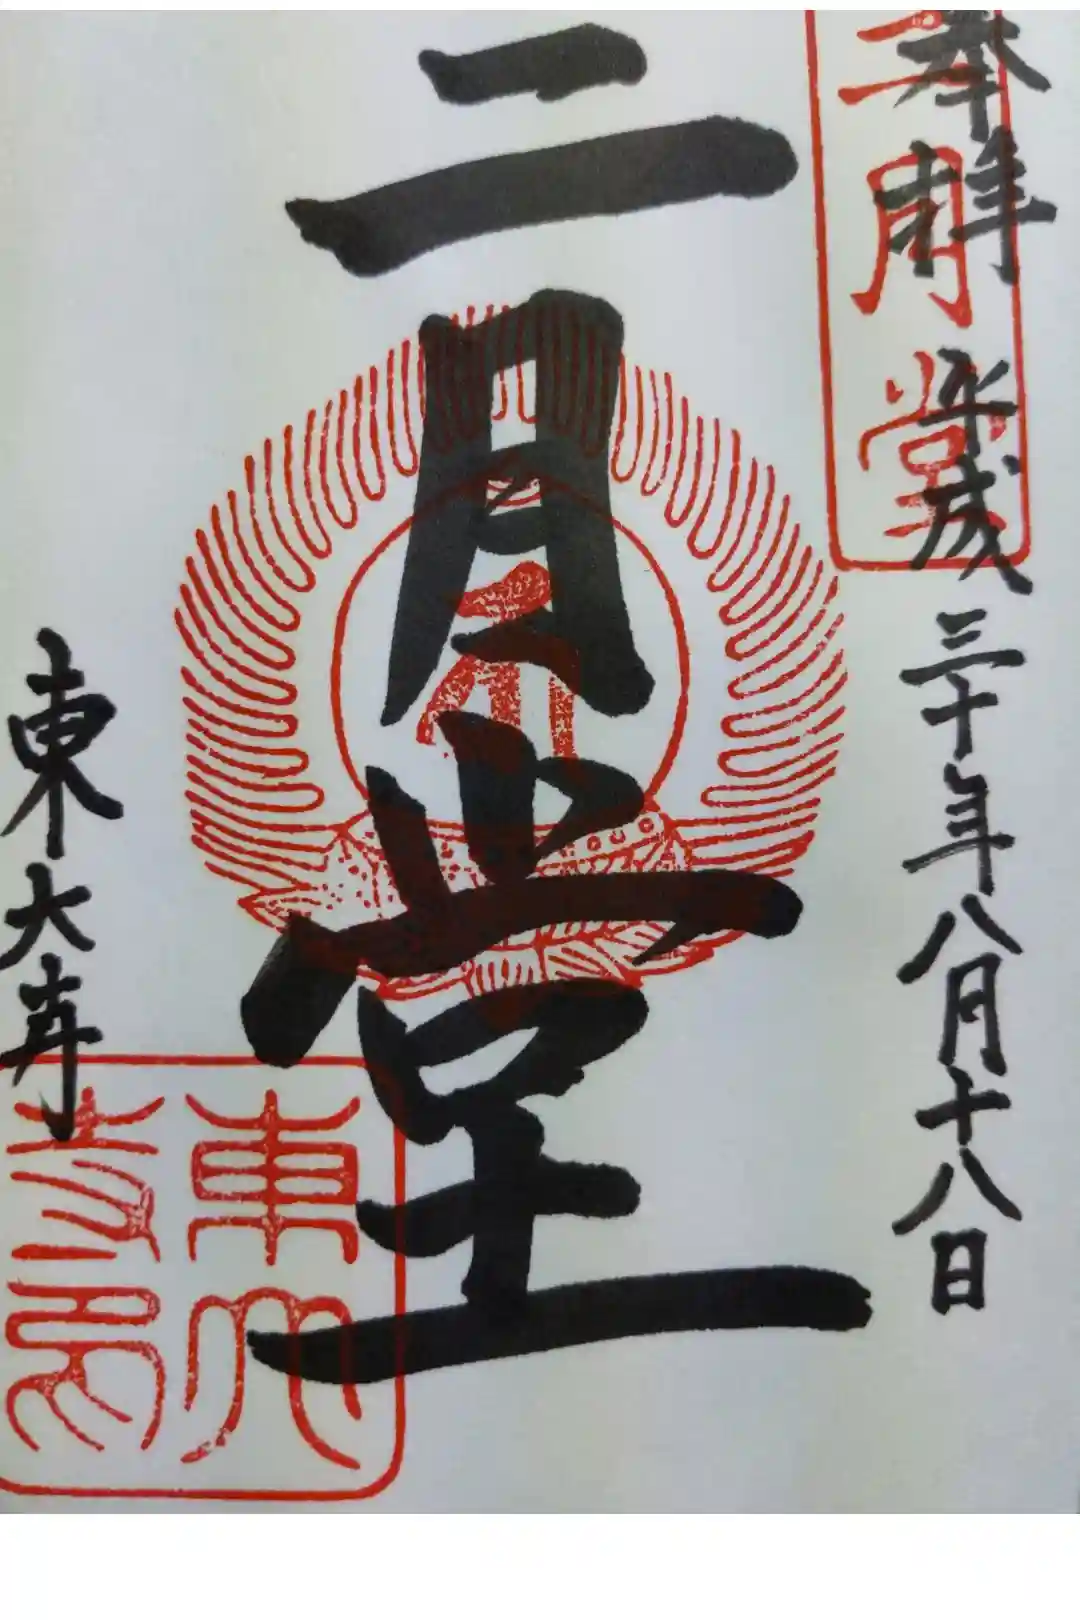 奉拝
二月堂
平成三十年八月十八日
二月堂
東大寺
東大寺印